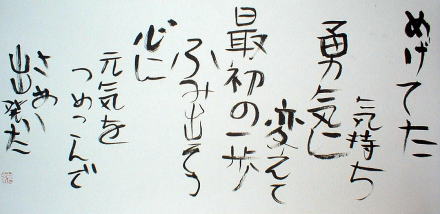 めげてた
気持ち
勇気に
変えて
最初の一歩
ふみ出そう
心に
元気を
つめこんで
さあ
出発だ